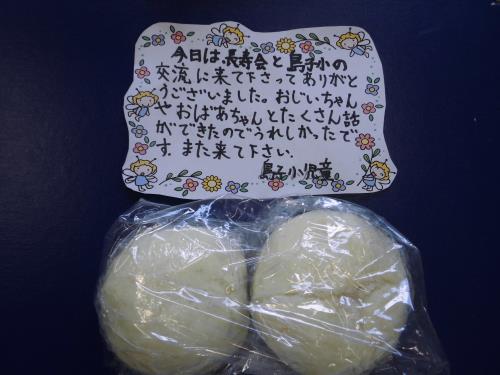 今日は、長寿会と島子小の
交流に来て下さってありがと
うございました。おじいちゃん
やおばあちゃんとたくさん話
ができたのでうれしかったで
す。また来て下さい。
島子小児童